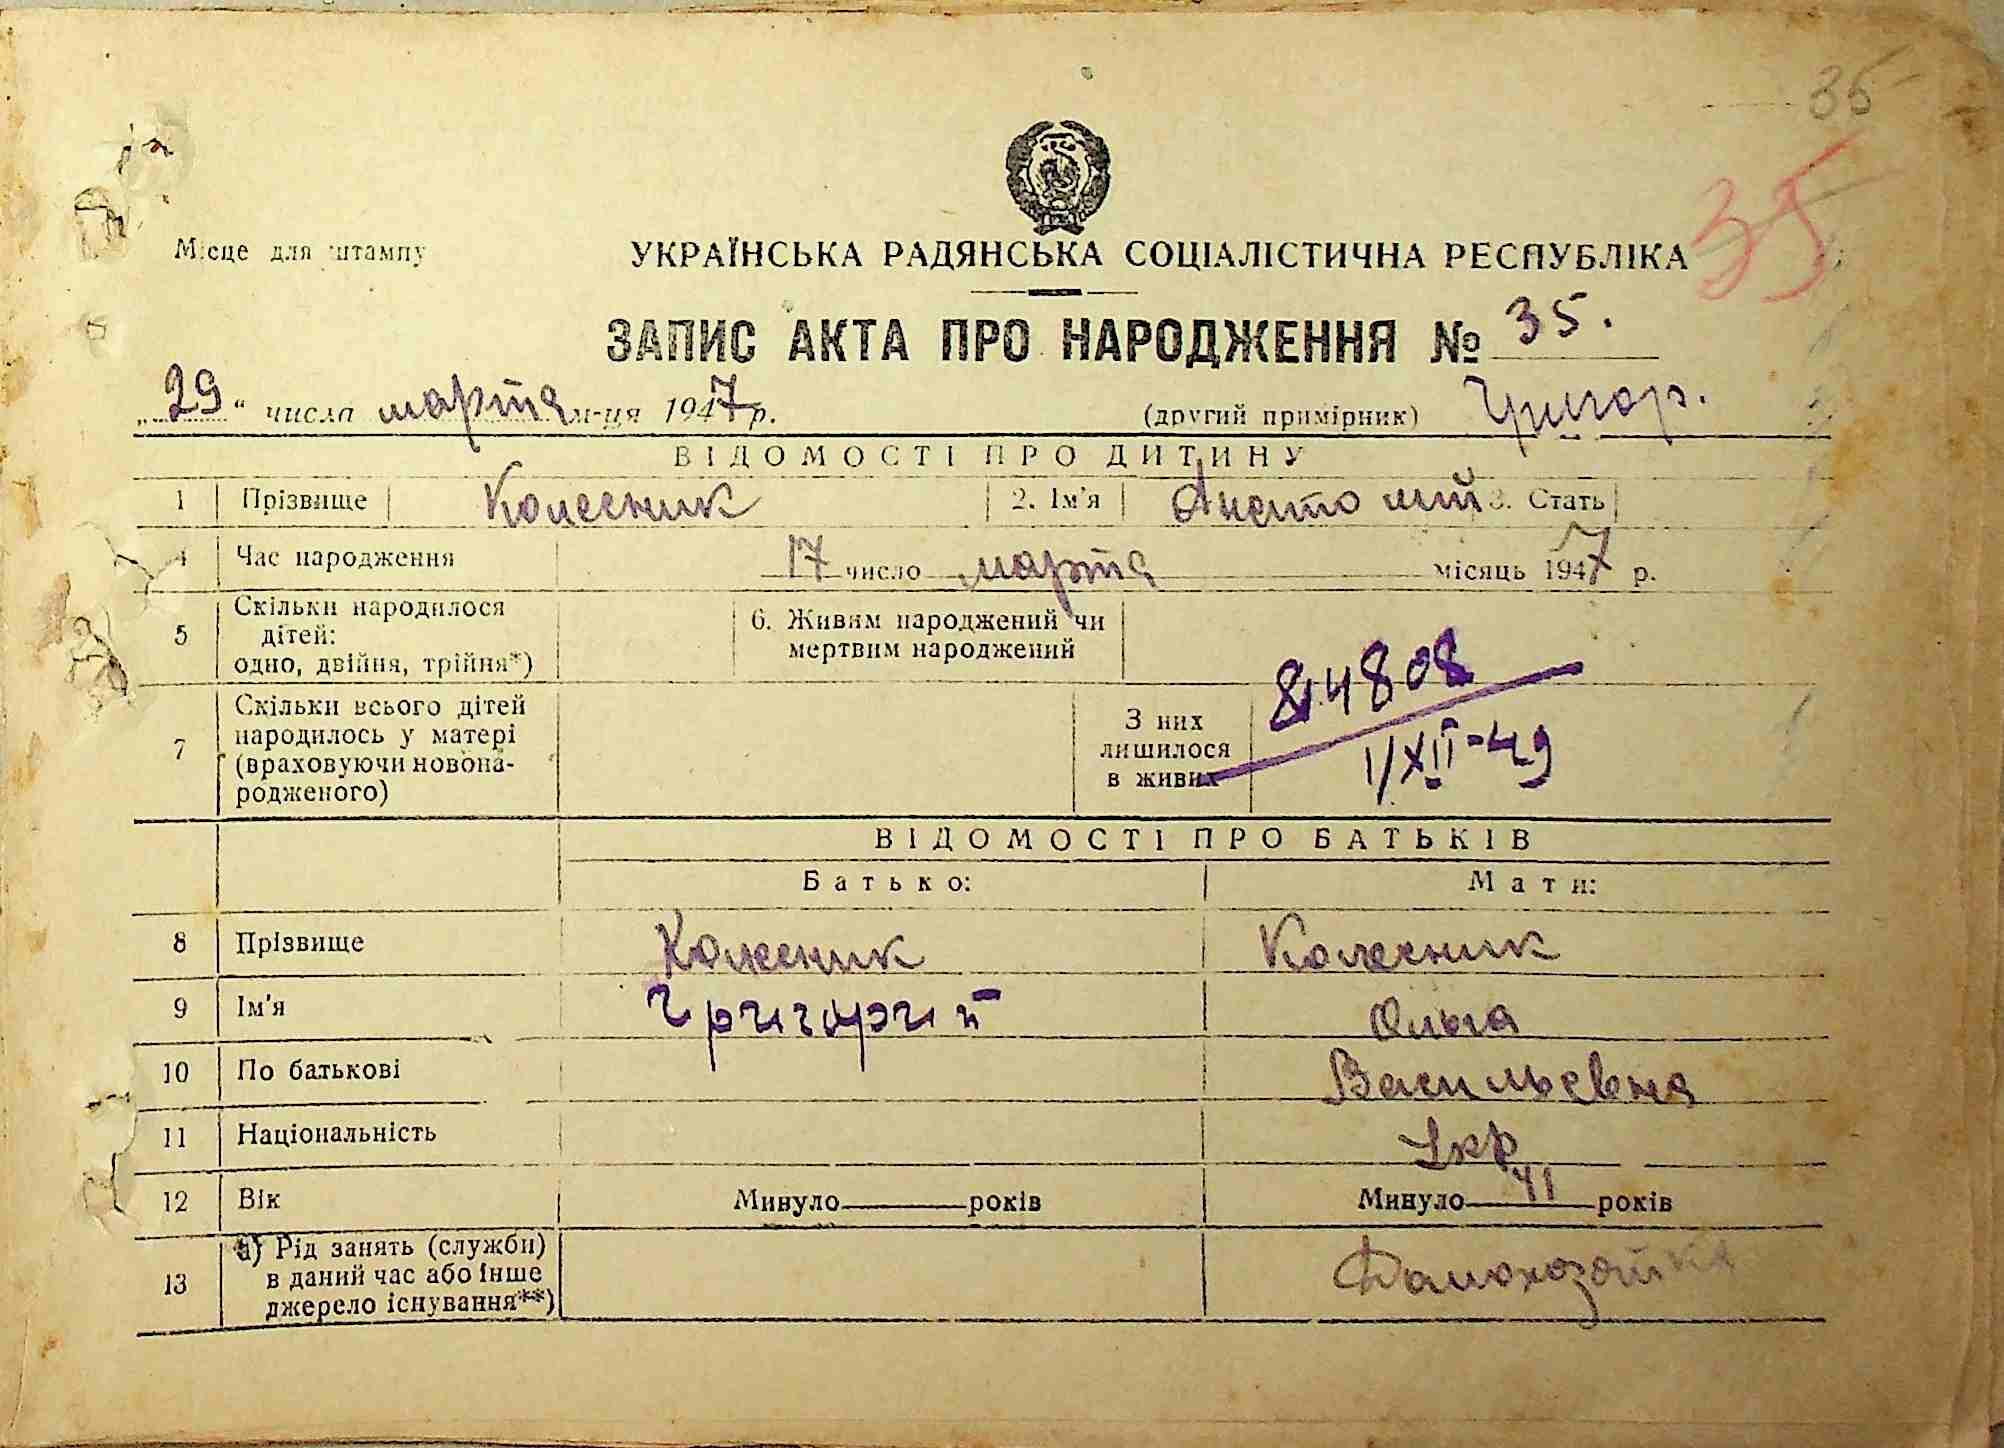 35
35
Місце для штампу
УКРАЇНСЬКА РАДЯНСЬКА СОЦІАЛІСТИЧНА РЕСПУБЛІКА
ЗАПИС АКТА ПРО НАРОДЖЕННЯ № 35.
„29“ числа марта м-ця 1947 р. (другий примірник) Григор.
ВІДОМОСТІ ПРО ДИТИНУ
1 Прізвище Колесник 2. Ім'я Анатолий 3. Стать
4 Час народження 17 число марта місяць 1947 р.
5 Скільки народилося дітей: одно, двійня, трійня*) 6. Живим народжений чи мертвим народжений
814808
1/XII-49
7 Скільки всього дітей народилось у матері (враховуючи новонародженого) З них лишилося в живих
ВІДОМОСТІ ПРО БАТЬКІВ
Батько: Мати:
8 Прізвище Колесник Колесник
9 Ім'я Григорий Ольга
10 По батькові Васильевна
11 Національність Укр
12 Вік Минуло років Минуло 41 років
13 а) Рід занять (служби) в даний час або інше джерело існування**) Домохозяйка